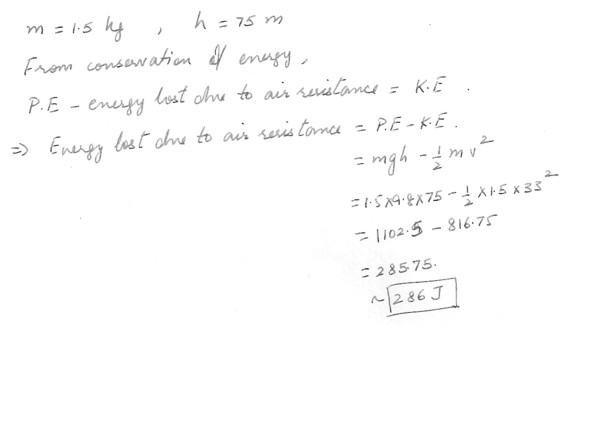 m = 1.5 kg , h = 75 m
From conservation of energy,
P.E - energy lost due to air resistance = K.E .
=> Energy lost due to air resistance = P.E - K.E .
= mgh - 1/2 m v²
= 1.5×9.8×75 - 1/2 ×1.5×33²
= 1102.5 - 816.75
= 285.75.
~ 286 J